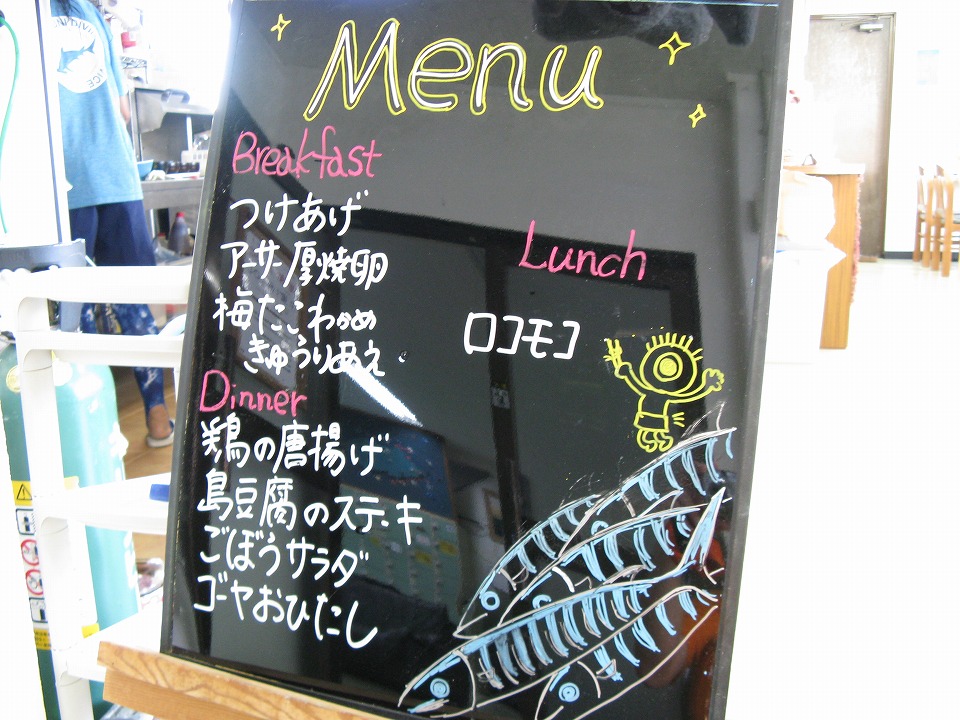 Menu
Breakfast
つけあげ
アーサー厚焼卵
梅たこわかめ
きゅうりあえ
Lunch
ロコモコ
Dinner
鶏の唐揚げ
島豆腐のステーキ
ごぼうサラダ
ゴーヤおひたし